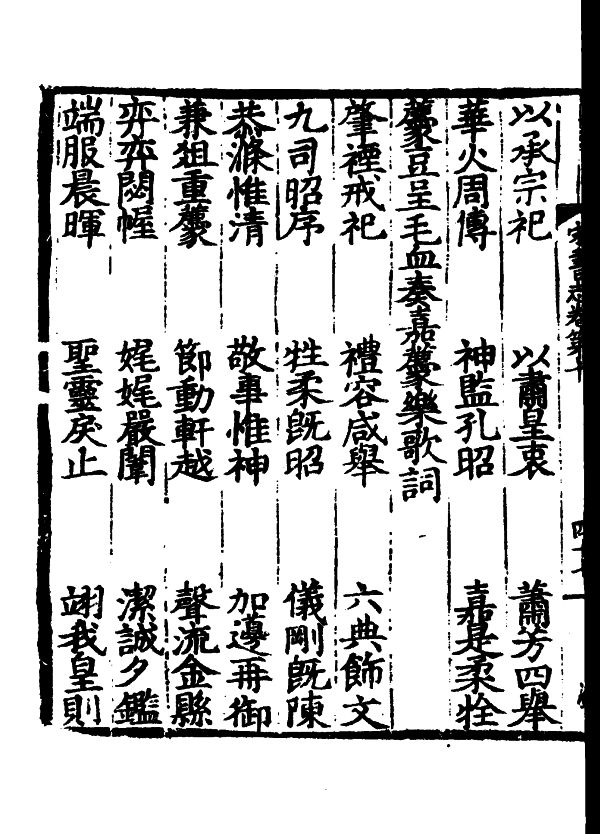 以承宗祀 以肅皇衷 蕭芳四舉
華火周傳 神監孔昭 嘉是柔牷
薦豆呈毛血奏嘉薦樂歌詞
肇禋戒祀 禮容咸舉 六典飾文
九司昭序 牲柔旣昭 儀剛旣陳
恭滌惟清 敬事惟神 加籩再御
兼俎重薦 節動軒越 聲流金縣
弈弈閟幄 娓娓嚴闈 潔誠夕鑑
端服晨暉 聖靈戾止 翊我皇則